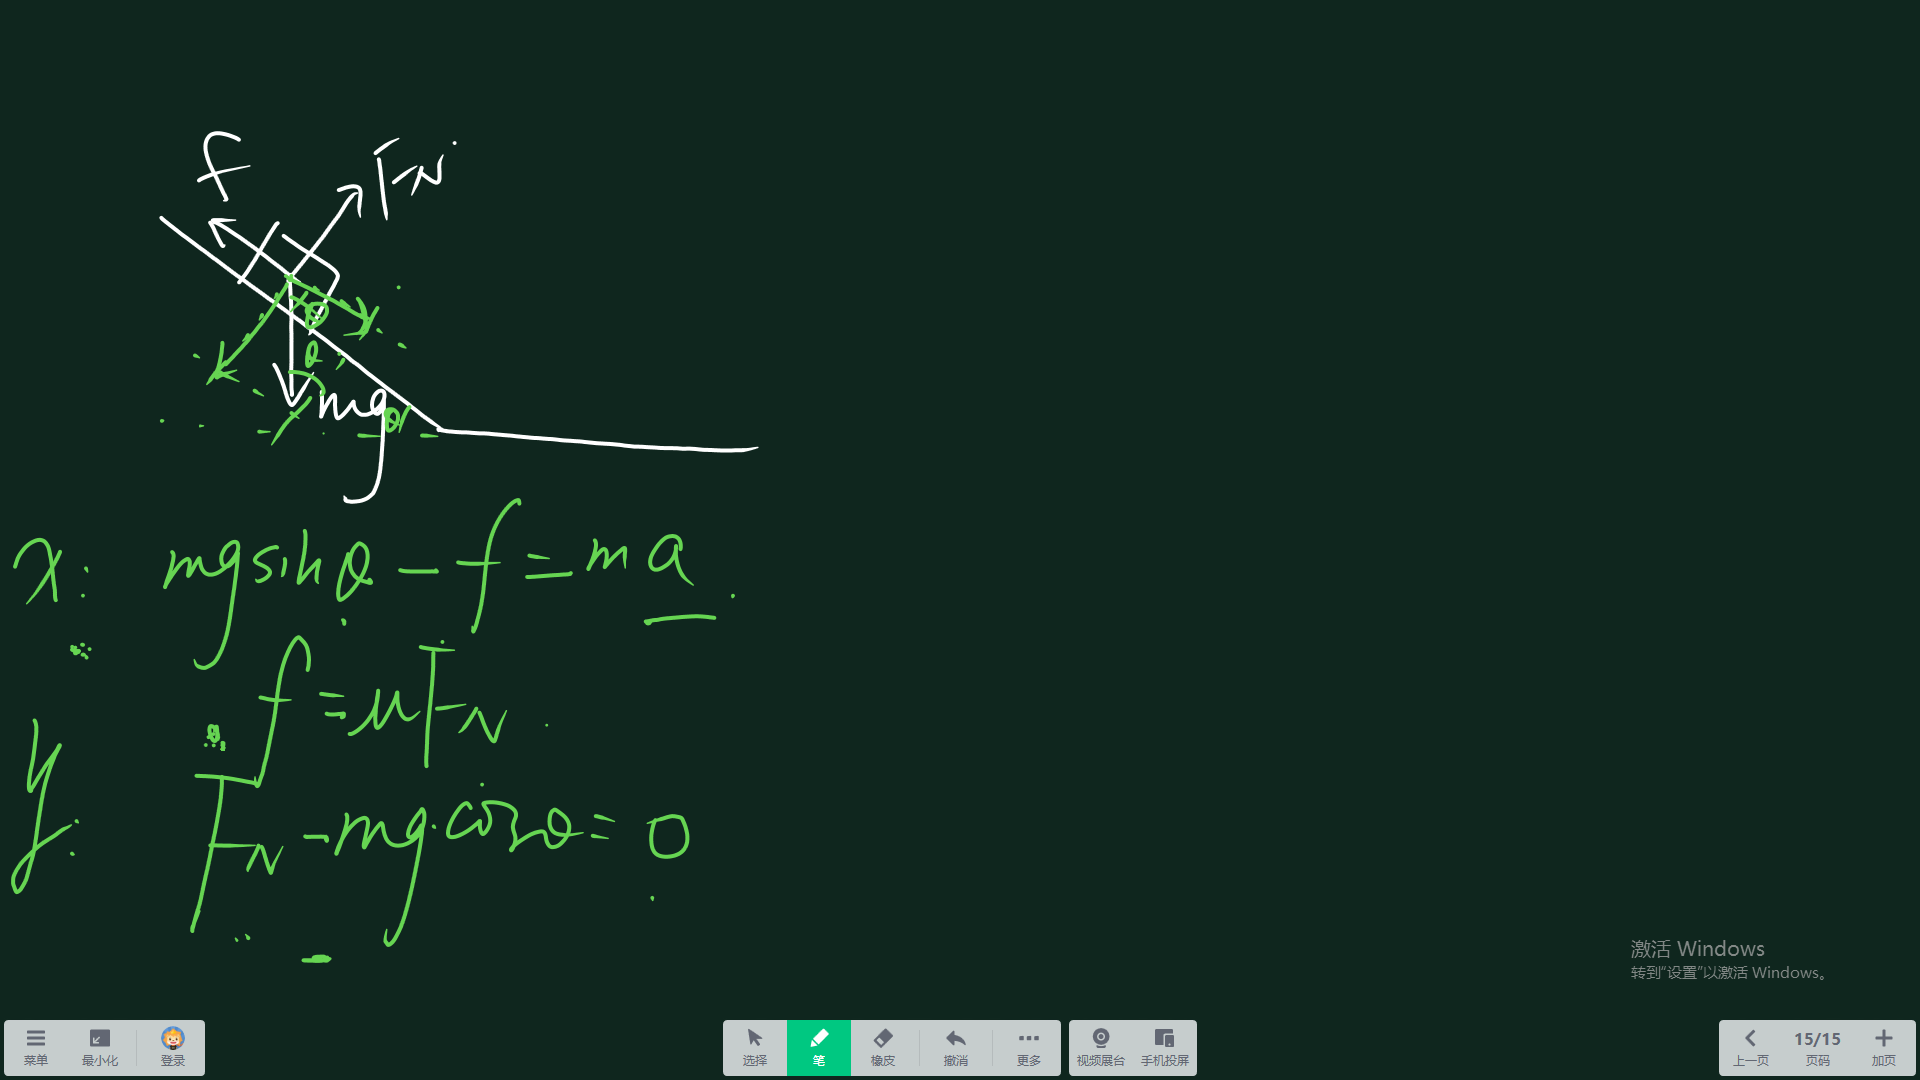 f
FN
θ
θ
mg
θ
x: mg sinθ - f = ma
f = μFN
y: FN - mg·cosθ = 0
激活 Windows
转到“设置”以激活 Windows。
菜单 最小化 登录 选择 笔 橡皮 撤消 更多 视频展台 手机投屏 上一页 15/15 页码 加页